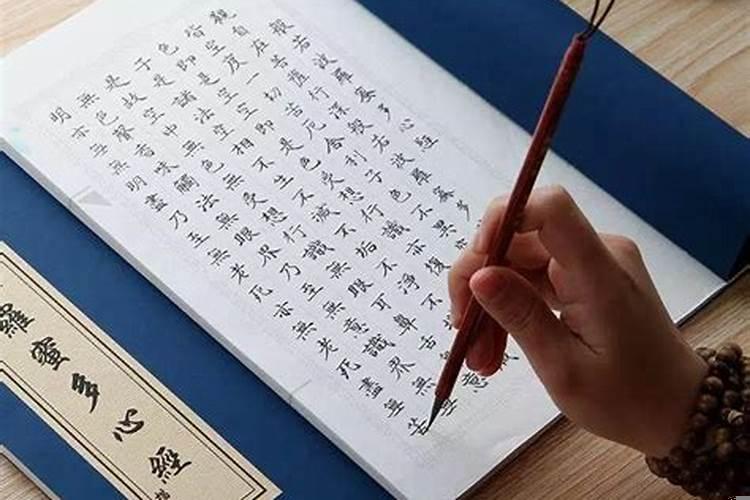 般若波羅蜜多心經
觀自在菩薩行深般若波羅蜜多
皆空度一切苦厄舍利子色不異
色即是空空即是色受想行識亦復
子是諸法空相不生不滅不垢不淨不
是故空中無色無受想行識無眼耳鼻舌
無色聲香味觸法無眼界乃至無意識界無無
明亦無無明盡乃至無老死亦無老死盡無苦
羅蜜多心經